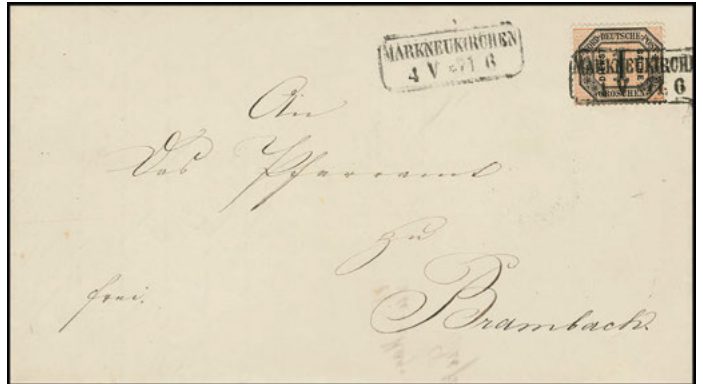 MARKNEUKIRCHEN
4 V 71 6
NORD-DEUTSCHE-POST
1
GROSCHEN
MARKNEUKIRCH
4 V 71 6
An
Das Pfarramt
zu
Brambach.
frei.